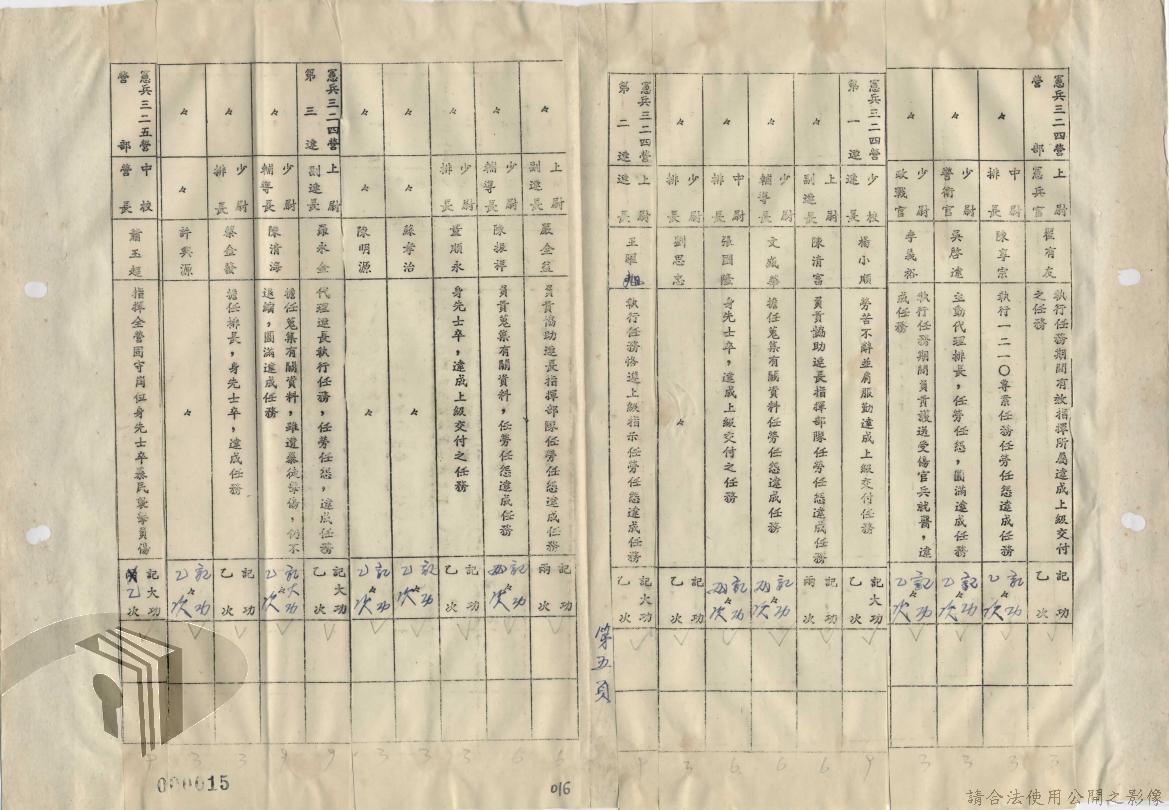 憲兵三二四營
營部
上尉
憲兵官
翟有友
執行任務期間有效指揮所屬達成上級交付
之任務
記功
乙次
〃
中尉
排長
陳享宗
執行一二一〇專案任務任勞任怨達成任務
記功
乙次
〃
少尉
警衛官
吳啓遠
主動代理排長，任勞任怨，圓滿達成任務
記功
乙次
〃
少尉
政戰官
李義裕
執行任務期間負責護送受傷官兵就醫，達
成任務
記功
乙次
憲兵三二四營
第一連
少校
連長
楊小順
勞苦不辭並肩服勤達成上級交付任務
記大功
乙次
〃
上尉
副連長
陳清富
負責協助連長指揮部隊任勞任怨達成任務
記功
兩次
〃
少尉
輔導長
文盛華
擔任蒐集有關資料任勞任怨達成任務
記功
兩次
〃
中尉
排長
張國隆
身先士卒，達成上級交付之任務
記功
兩次
〃
少尉
排長
劉思忠
〃
記功
乙次
憲兵三二四營
第二連
上尉
連長
王曜
執行任務恪遵上級指示任勞任怨達成任務
記大功
乙次
第五頁
〃
上尉
副連長
嚴金益
負責協助連長指揮部隊任勞任怨達成任務
記功
兩次
〃
少尉
輔導長
陳振祥
負責蒐集有關資料，任勞任怨達成任務
記功
兩次
〃
少尉
排長
董順永
身先士卒，達成上級交付之任務
記功
乙次
〃
〃
蘇孝治
〃
記功
乙次
〃
〃
陳明源
〃
記功
乙次
憲兵三二四營
第三連
上尉
副連長
羅永金
代理連長執行任務，任勞任怨，達成任務
記大功
乙次
〃
少尉
輔導長
陳清海
擔任蒐集有關資料，雖遭暴徒擊傷，仍不
退縮，圓滿達成任務
記大功
乙次
〃
少尉
排長
蔡金發
擔任排長，身先士卒，達成任務
記功
乙次
〃
〃
許興源
〃
記功
乙次
憲兵三二五營
營部
中校
營長
蕭玉超
指揮全營固守崗位身先士卒暴民襲擊負傷
記大功
乙次
000015
016
請合法使用公開之影像